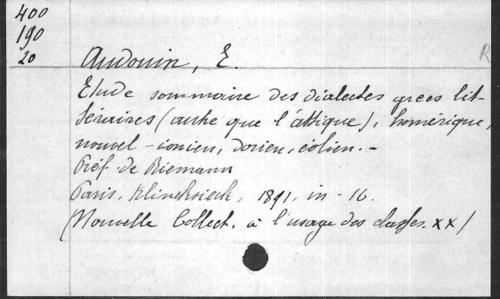 400
190
20
R
Audouin, E.
Etude sommaire des dialectes grecs lit-
téraires (autre que l'attique), homérique,
nouvel-ionien, dorien, éolien. -
Préf. de Riemann
Paris, Klincksieck, 1891, in-16.
(Nouvelle Collect. à l'usage des classes. XX)